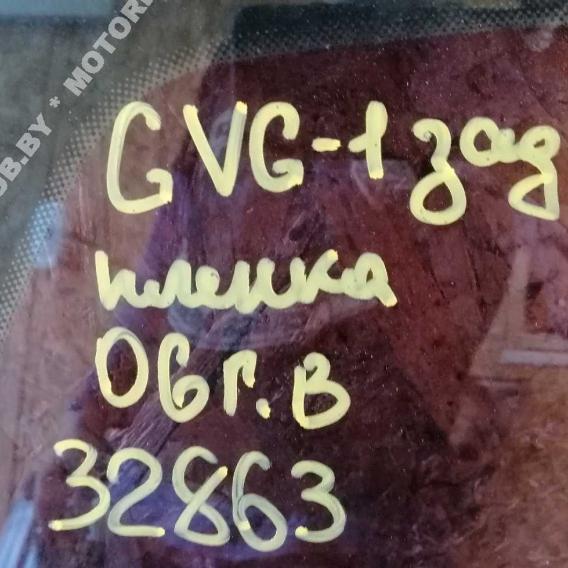 OB.BY * MOTOR
GVG-1 зад
пленка
06г.в
32863